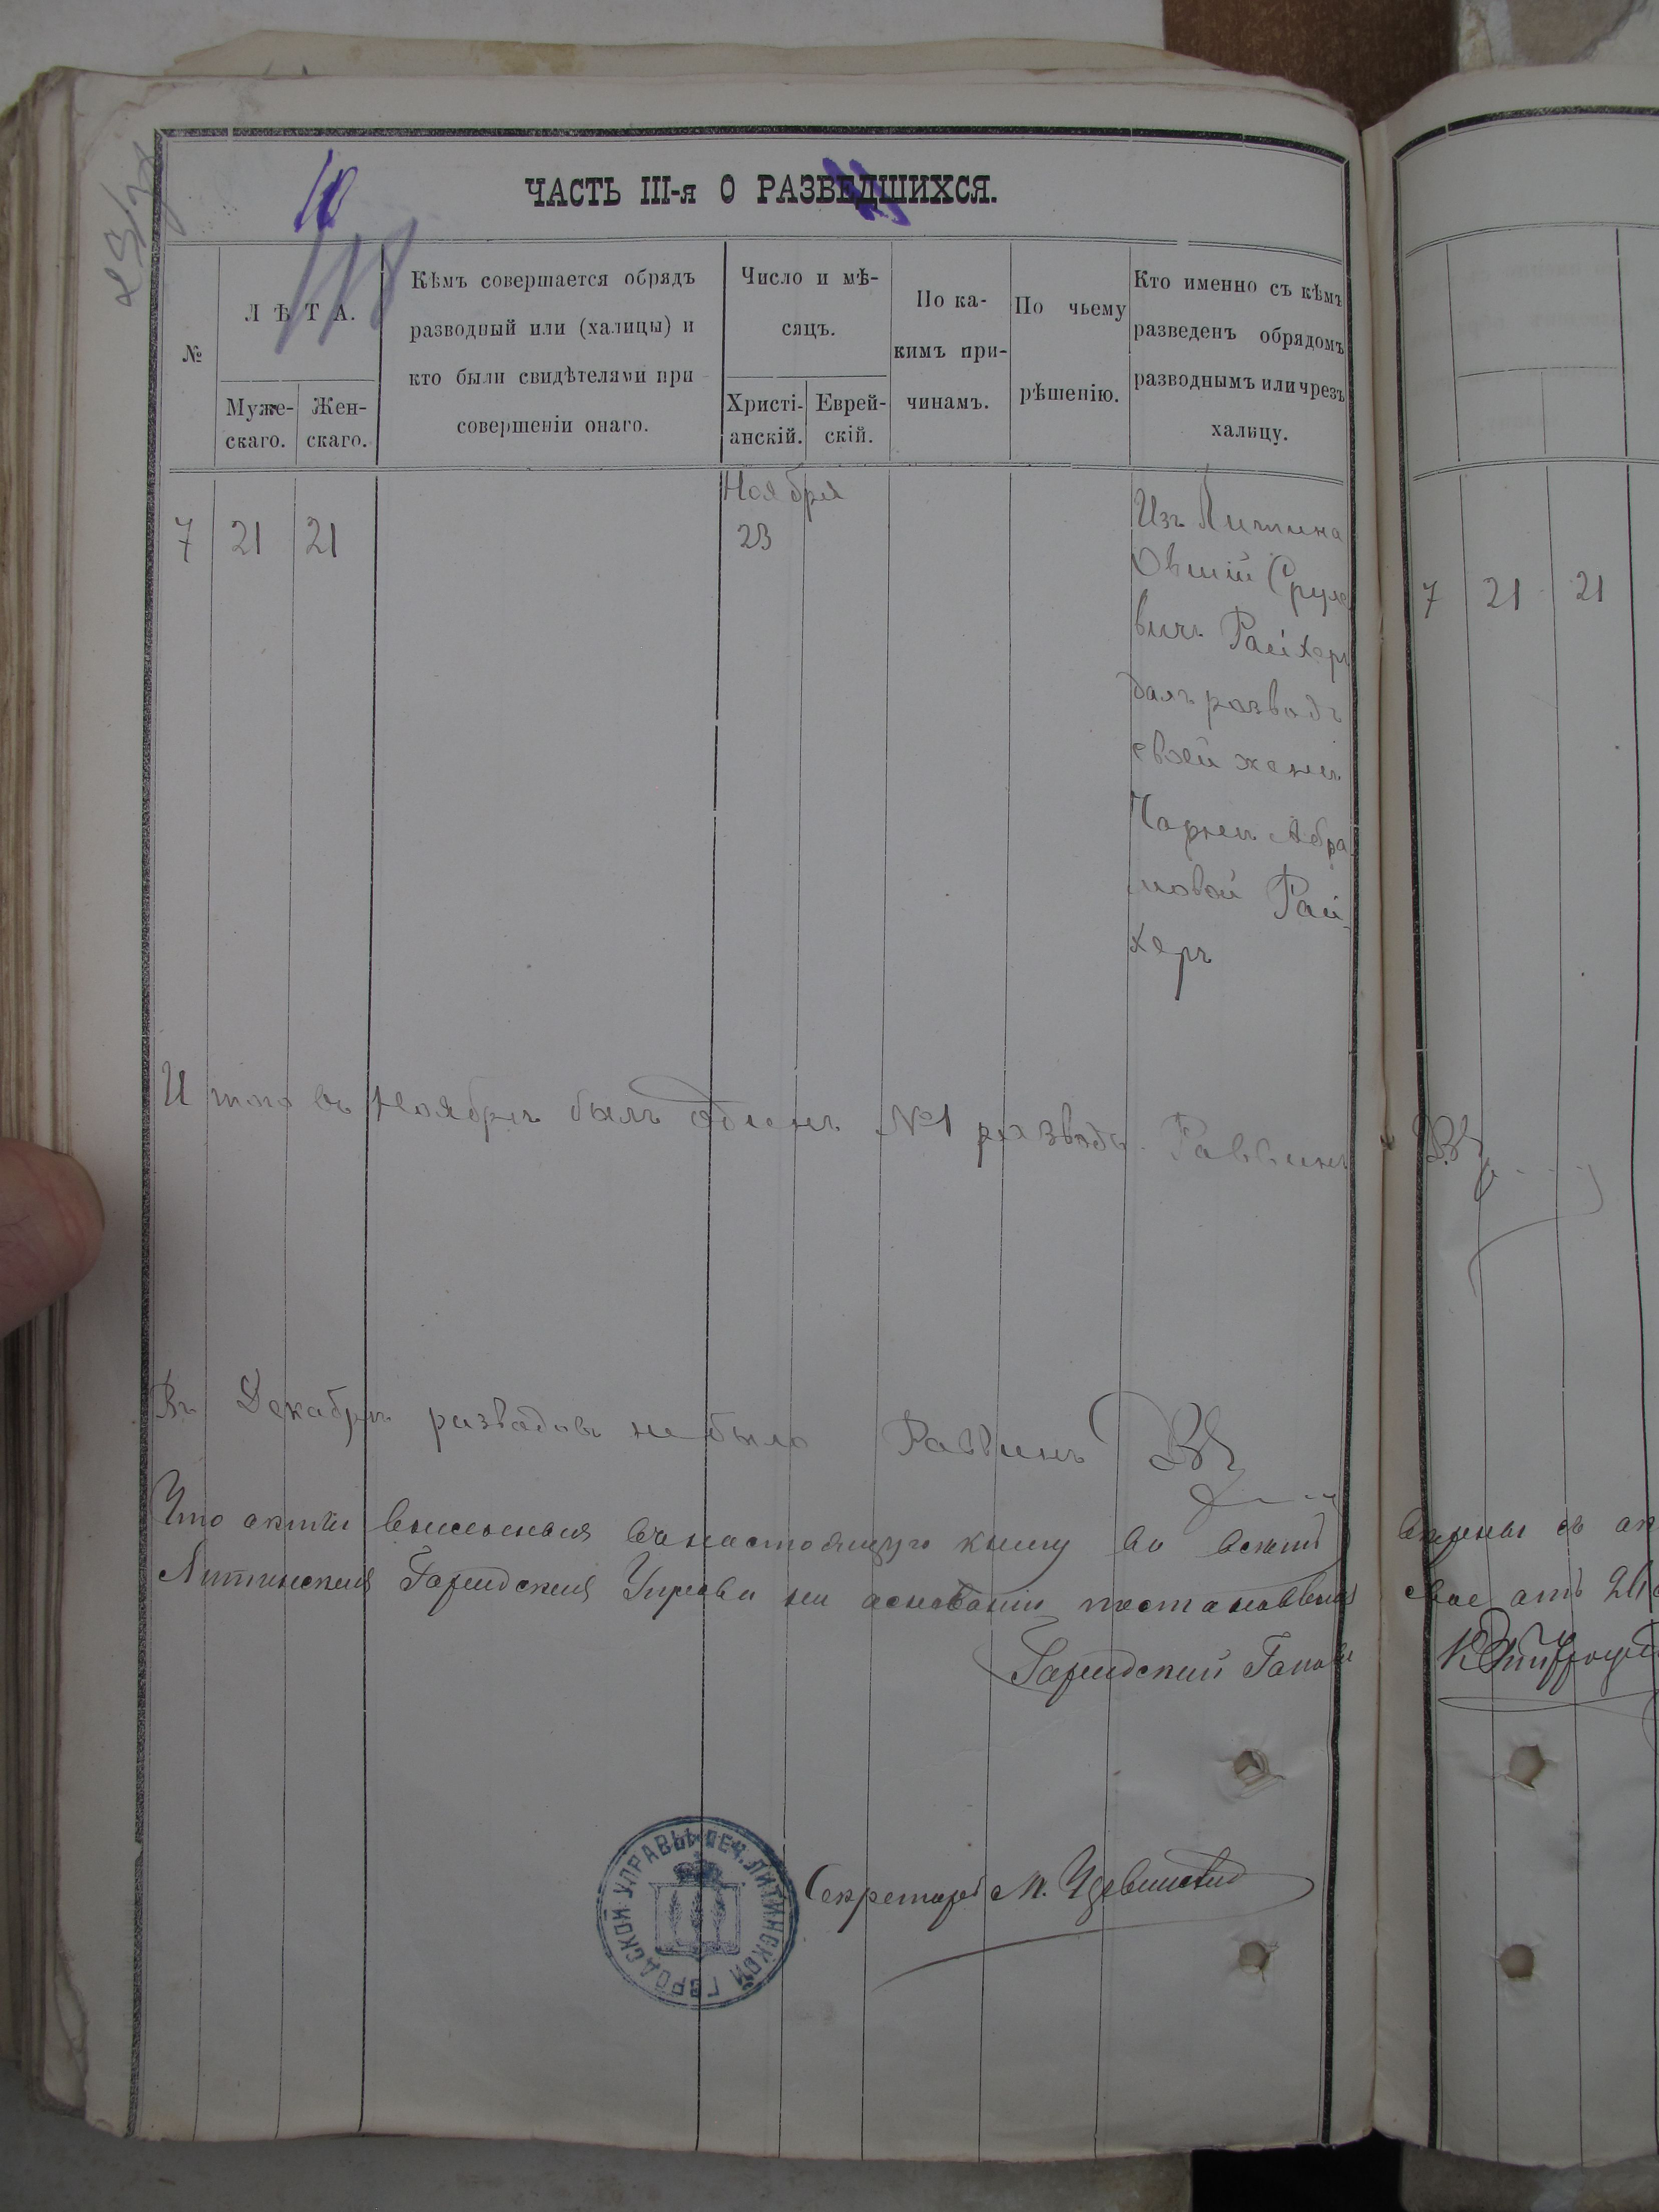 10
118
ЧАСТЬ III-я О РАЗВЕДШИХСЯ.
№
ЛѢТА.
Муже-
скаго.
Жен-
скаго.
Кѣмъ совершается обрядъ
разводный или (халицы) и
кто были свидѣтелями при
совершеніи онаго.
Число и мѣ-
сяцъ.
Христі-
анскій.
Еврей-
скій.
По ка-
кимъ при-
чинамъ.
По чьему
рѣшенію.
Кто именно съ кѣмъ
разведенъ обрядомъ
разводнымъ или чрезъ
халицу.
Ноября
7 21 21 23
Изъ Литина
Овшій Сруле
вичъ Райхеръ
далъ разводъ
своей женѣ
Чарнѣ Абра
мовой Рай-
херъ
7 21 21
Итого въ Ноябрѣ былъ одинъ №1 разводъ. Раввинъ
Въ Декабрѣ разводовъ не было Раввинъ
Что акты внесенныя въ настоящую книгу во всемъ вѣрны съ ак
Литинская Городская Управа на основаніи постановленія свое отъ 24
Городской Голова
Секретарь М.
ПЕЧ. ЛИТИНСКОЙ ГОРОДСКОЙ УПРАВЫ